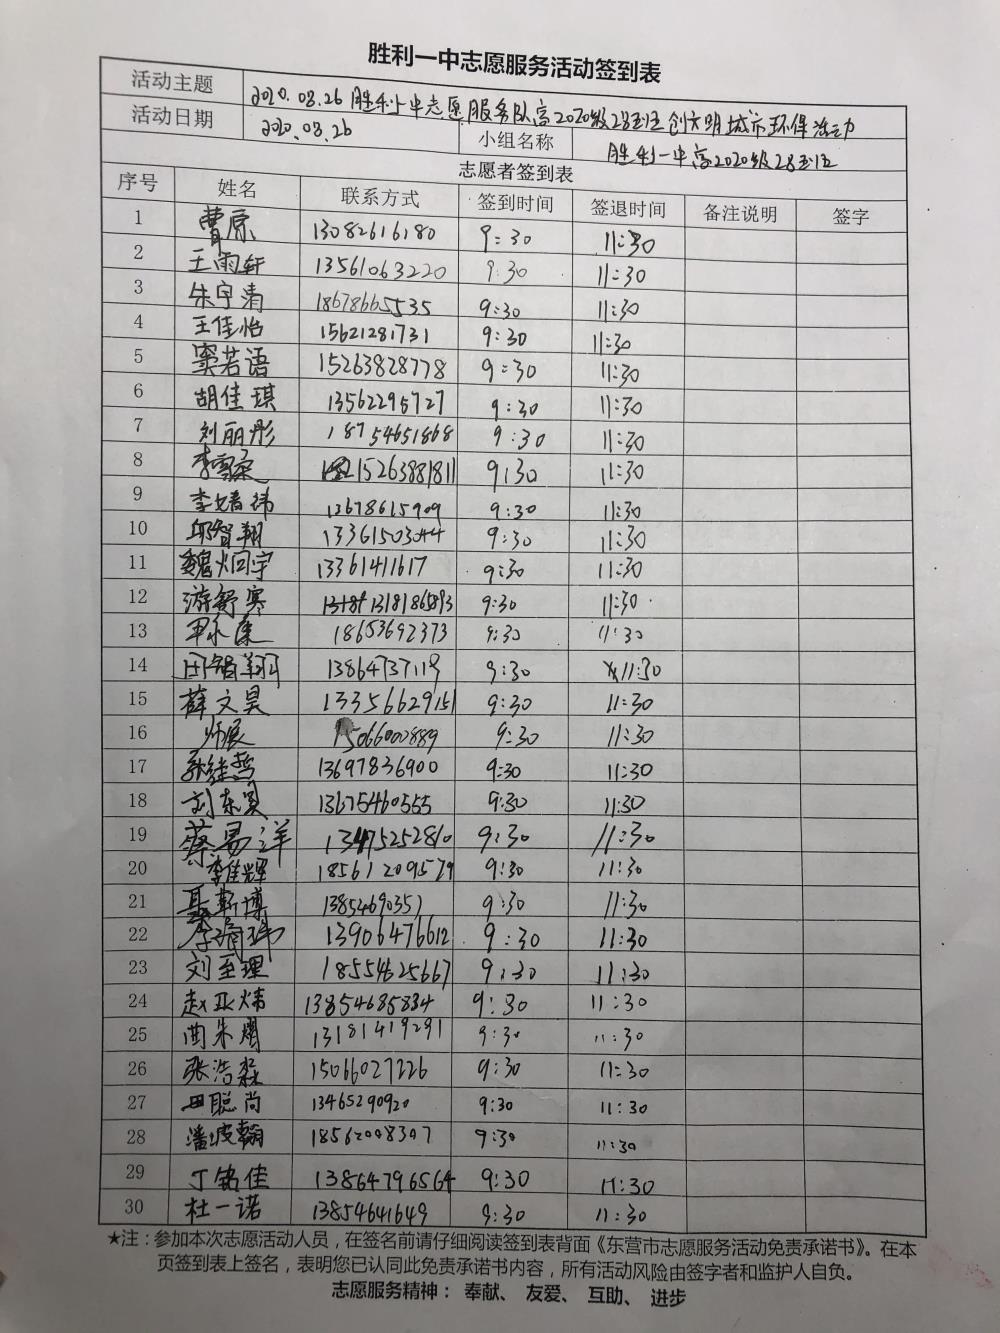 胜利一中志愿服务活动签到表
活动主题 2020.08.26 胜利一中志愿服务队高2020级28班创文明城市环保活动
活动日期 2020.08.26 小组名称 胜利一中高2020级28班
志愿者签到表
序号 姓名 联系方式 签到时间 签退时间 备注说明 签字
1 曹原 13082616180 9:30 11:30
2 王雨轩 13561063220 9:30 11:30
3 朱宇清 18678665535 9:30 11:30
4 王佳怡 15621281731 9:30 11:30
5 窦若语 15263828778 9:30 11:30
6 胡佳琪 13562295727 9:30 11:30
7 刘丽彤 18754651868 9:30 11:30
8 李雪 9:30 11:30
9 李婧祎 13678615909 9:30 11:30
10 邱智翔 13361503044 9:30 11:30
11 魏炯宇 13361411617 9:30 11:30
12 游舒寒 13181865893 9:30 11:30
13 18653692373 9:30 11:30
14 田锴翔 13864737119 9:30 11:30
15 薛文昊 13356629151 9:30 11:30
16 师展 15066000889 9:30 11:30
17 13697836900 9:30 11:30
18 刘东昊 13675460555 9:30 11:30
19 蔡易洋 13475252810 9:30 11:30
20 李佳辉 18561209579 9:30 11:30
21 聂新博 13854690357 9:30 11:30
22 13906476612 9:30 11:30
23 刘至理 18554625667 9:30 11:30
24 赵亚炜 13854685834 9:30 11:30
25 曲朱熠 13181419291 9:30 11:30
26 张浩淼 15066027226 9:30 11:30
27 田聪尚 13465290920 9:30 11:30
28 潘竣翰 18562008307 9:30 11:30
29 丁铭佳 13864796564 9:30 11:30
30 杜一诺 13854641649 9:30 11:30
★注：参加本次志愿活动人员，在签名前请仔细阅读签到表背面《东营市志愿服务活动免责承诺书》。在本
页签到表上签名，表明您已认同此免责承诺书内容，所有活动风险由签字者和监护人自负。
志愿服务精神： 奉献、 友爱、 互助、 进步